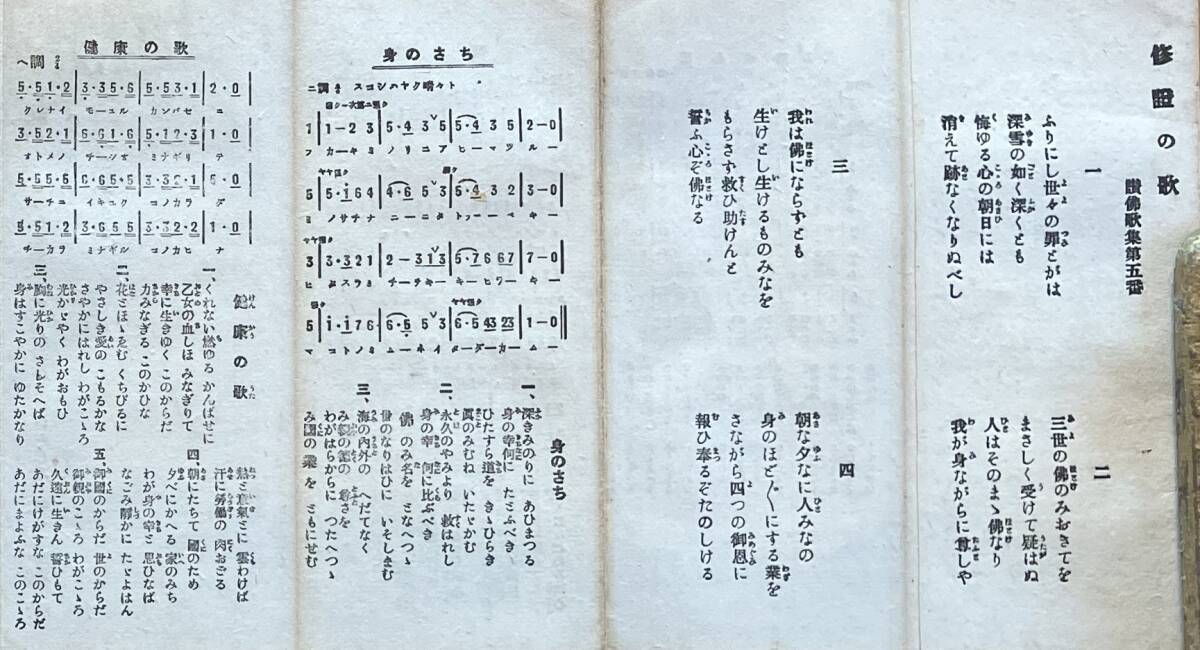 修證の歌
讃佛歌集第五番
一
ふりにし世々の罪とがは
深雪の如く深くとも
悔ゆる心の朝日には
消えて跡なくなりぬべし
二
三世の佛のみおきてを
まさしく受けて疑はぬ
人はそのまゝ佛なり
我が身ながらに尊しや
三
我は佛にならずとも
生けとし生けるものみなを
もらさず救ひ助けんと
誓ふ心ぞ佛なる
四
朝な夕なに人みなの
身のほど〴〵にする業を
さながら四つの御恩に
報ひ奉るぞたのしける
身のさち
ニ調 スコシハヤク晴々ト
1 | 1–2 3 | 5·4 3 5 | 5·4 3 5 | 2–0 |
フ カーキミ ノリニア ヒーマツ ルー
5 | 5·i 6 4 | 4·6 5 3 | 5·4 3 2 | 3–0 |
ミ ノサチナ ニーニタ トフーベ キー
3 | 3·3 2 1 | 2–3 1 3 | 5·7 6 6 7 | 7–0 |
5 | i·i 7 6 | 6·5 5 3 | 6·5 43 23 | 1–0 ‖
マ コトノミ ムーネイ ダーダーカー ムー
身のさち
一、深きみのりに あひまつる
身の幸何に たとふべき
ひたすら道を きゝひらき
眞のみむね いたゞかむ
二、永久のやみより 救はれし
身の幸 何に比ぶべき
佛のみ名を となへつゝ
世のなりはひに いそしまむ
三、海の内外の へだてなく
み親の德の 尊さを
わがはらからに つたへつゝ
み國の業を ともにせむ
健康の歌
ヘ調 2/4
5·5 1·2 | 3·3 5·6 | 5·5 3·1 | 2·0 |
クレナイ モーユル カンバセ ニ
3·5 2·1 | 6·6 1·6 | 5·1 2·3 | 1·0 |
オトメノ チーシオ ミナギリ テ
サーチニ イキユク コノカラ ダ
5·5 1·2 | 3·6 5 5 | 3·3 2·2 | 1·0 |
チーカラ ミナギル コノカヒ ナ
健康の歌
一、くれない燃ゆる かんばせに
乙女の血しほ みなぎりて
幸に生きゆく このからだ
力みなぎる このかひな
二、花とほゝゑむ くちびるに
やさしき愛の こもるかな
さやかにはれし わがこゝろ
光かゞやく わがおもひ
三、胸に光りの さしそへば
身はすこやかに ゆたかなり
熱と意氣とに 雲わけば
汗に勞働の 肉おどる
四、朝にたちて 國のため
夕べにかへる 家のみち
わが身の幸と 思ひなば
なごみ靜かに たゞよはん
五、御國のからだ 世のからだ
御親のこゝろ わがこゝろ
久遠に生きん 誓ひもて
あだにけがすな このからだ
あだにまよふな このこゝろ